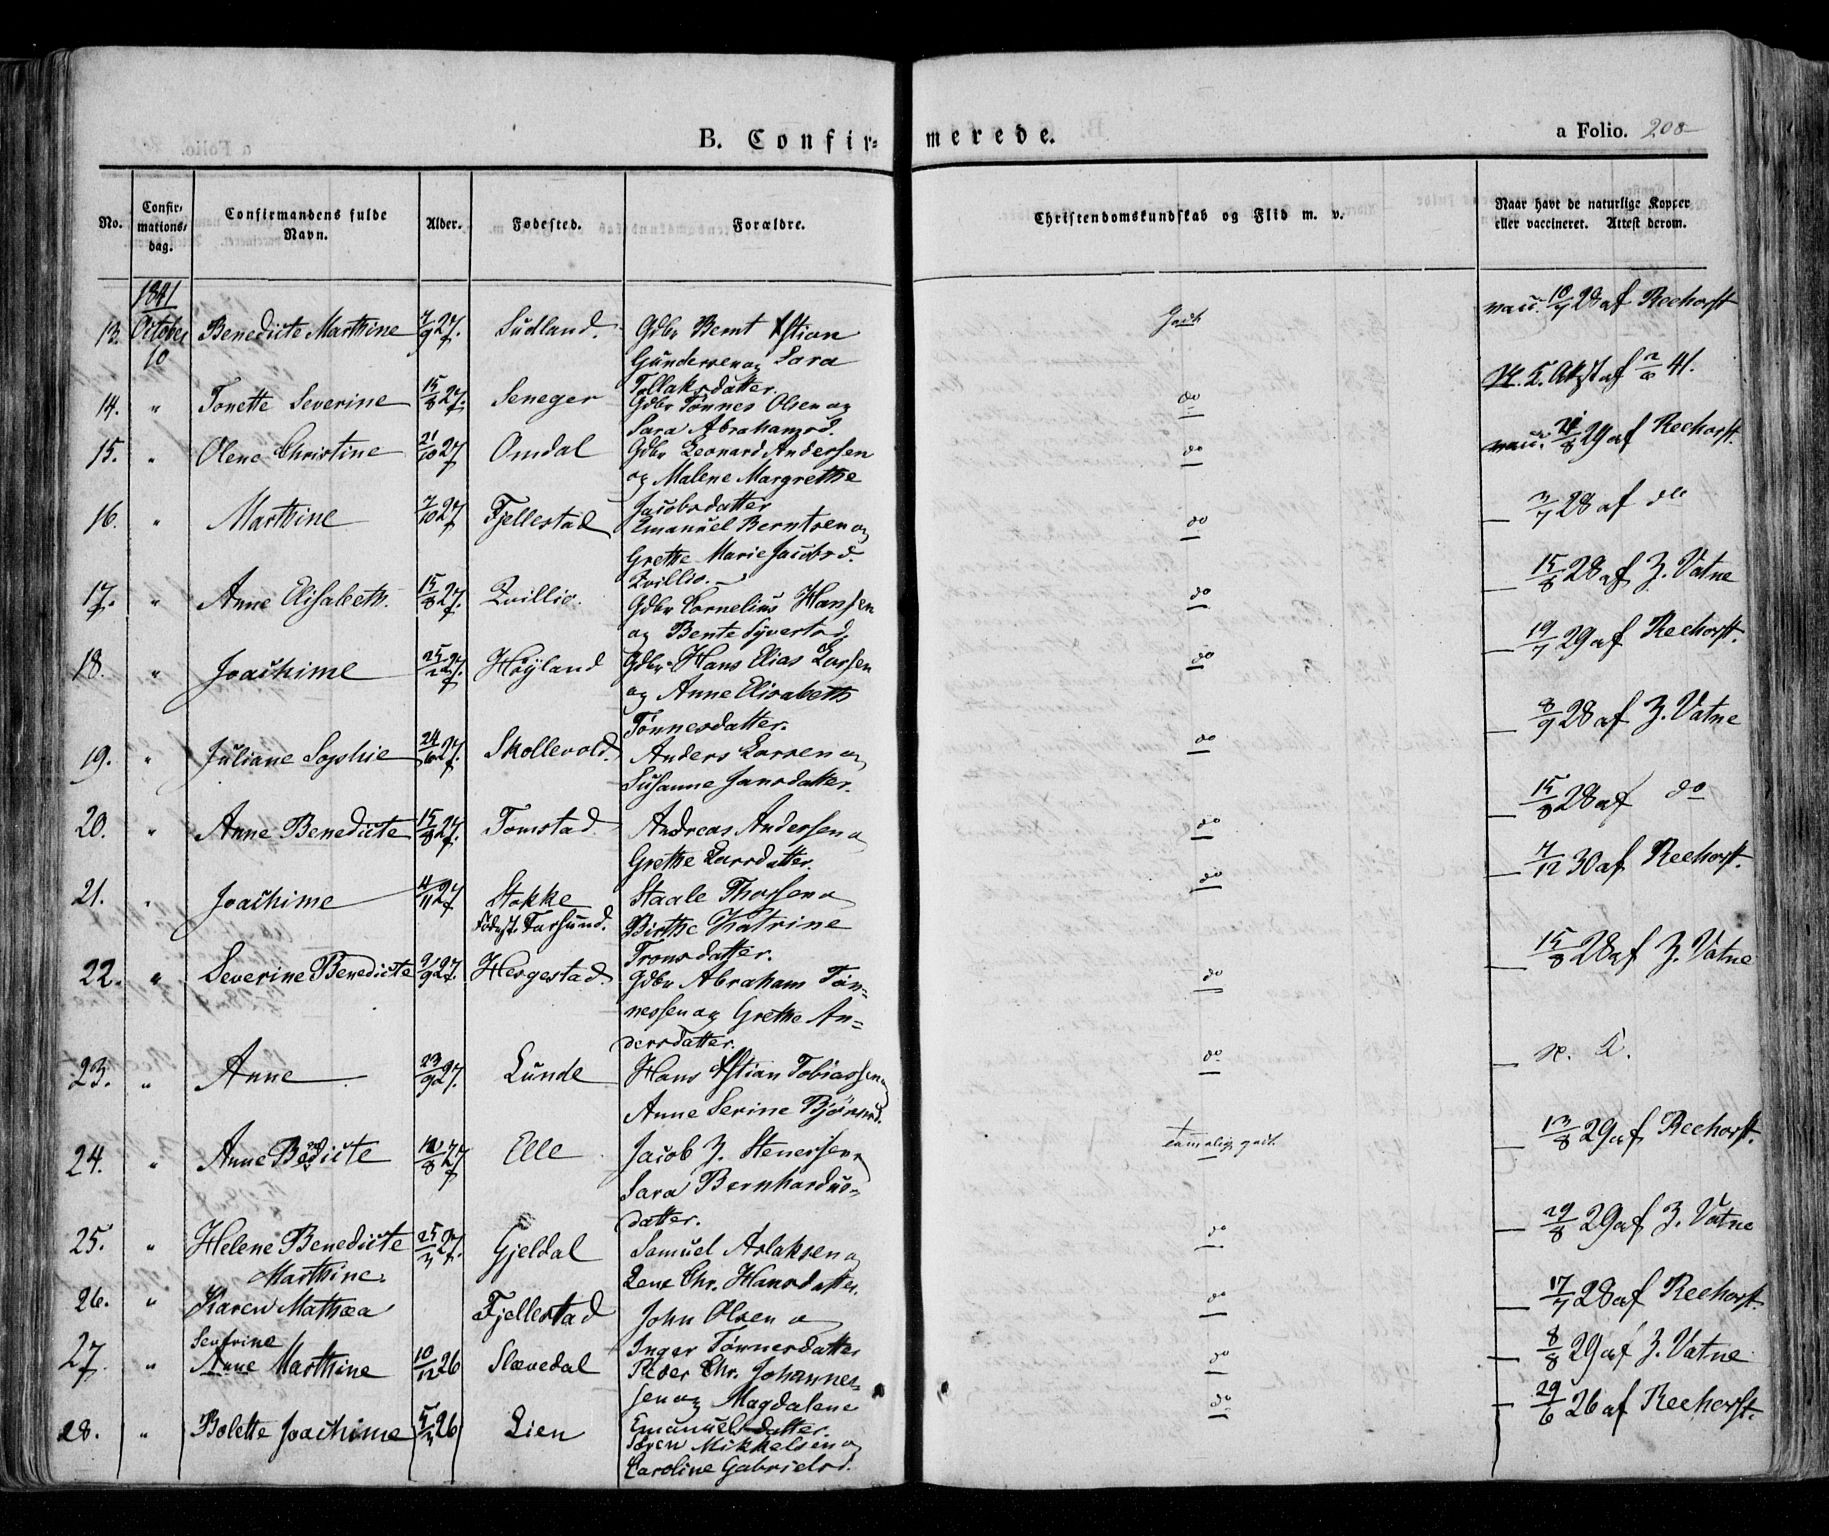 B. Confir-
merede.
a Folio. 208
No.
Confir-
mations-
dag.
Confirmandens fulde
Navn.
Alder.
Fødested.
Forældre.
Christendomskundskab og Flid m. v.
Naar havt de naturlige Kopper
eller vaccineret. Attest derom.
1841
13. October 10 Benedicte Marthine 7/9 27. Sudland. Gdbr Bernt Xstian
Gundersen og Sara
Tollaksdatter.
Godt
vacc. 10/7 28 af Reehorst
14. " Tonette Severine 15/8 27. Seneger Gdbr Tønnes Olsen og
Sara Abrahamsd.
do
15. " Olene Christine 21/10 27 Omdal Gdbr Leonard Andersen
og Malene Margrethe
Jacobsdatter
do
vacc. 29 af Reehorst.
16. " Marthine 7/10 27 Fjellestad Emanuel Berntsen og
Grethe Marie Jacobsd.
Qvillio.
do
— 3/7 28 af do
17. " Anne Elisabeth. 15/8 27. Qvillio. Gdbr Cornelius Hansen
og Bente Syvertsd.
do
— 15/8 28 af Z. Vatne
18. " Joachime 27. Høyland Gdbr Hans Elias Larsen
og Anne Elisabeth
Tønnesdatter.
do
— 19/7 29 af Reehorst.
19. " Juliane Sophie 27. Skollevold. Anders Larsen og
Susanne Jansdatter.
do
— 8/9 28 af Z. Vatne
20. " Anne Benedicte 15/8 27. Tomstad. Andreas Andersen o
Grethe Larsdatter.
do
— 15/8 28 af do
21. " Joachime 11/11 27 Stokke
Fødest. Farsund. Staale Thorsen o
Birthe Katrine
Tronsdatter.
do
— 7/12 30 af Reehorst.
22. " Severine Benedicte 27. Hergestad Gdbr Abraham Tøn-
nessen og Grethe An-
dersdatter.
do
— 15/8 28 af Z. Vatne
23. " Anne 23/9 27. Lunde Hans Xstian Tobiassen o
Anne Serine Bjørnsd.
do
24. " Anne Bedicte 27 Elle Jacob Z. Stenersen o
Sara Bernhardus-
datter.
temelig godt.
— 13/8 29 af Reehorst.
25. " Helene Benedicte
Marthine. 27. Gjeldal Samuel Aslaksen o
Lene Chr. Hansdatter.
do
— 29/8 29 af Z. Vatne
26. " Karen Mathea Fjellestad John Olsen o
Inger Tønnesdatter
do
— 17/7 28 af Reehorst.
27. " Sevrine
Anne Marthine 10/12 26 Slævedal Peder Chr. Johannes-
sen og Magdalene
Emanuelsdatter.
do
— 8/8 29 af Z. Vatne
28. " Bolette Joachime 26 Lien Søren Mikkelsen o
Caroline Gabrielsd.
do
— 29/6 26 af Reehorst.